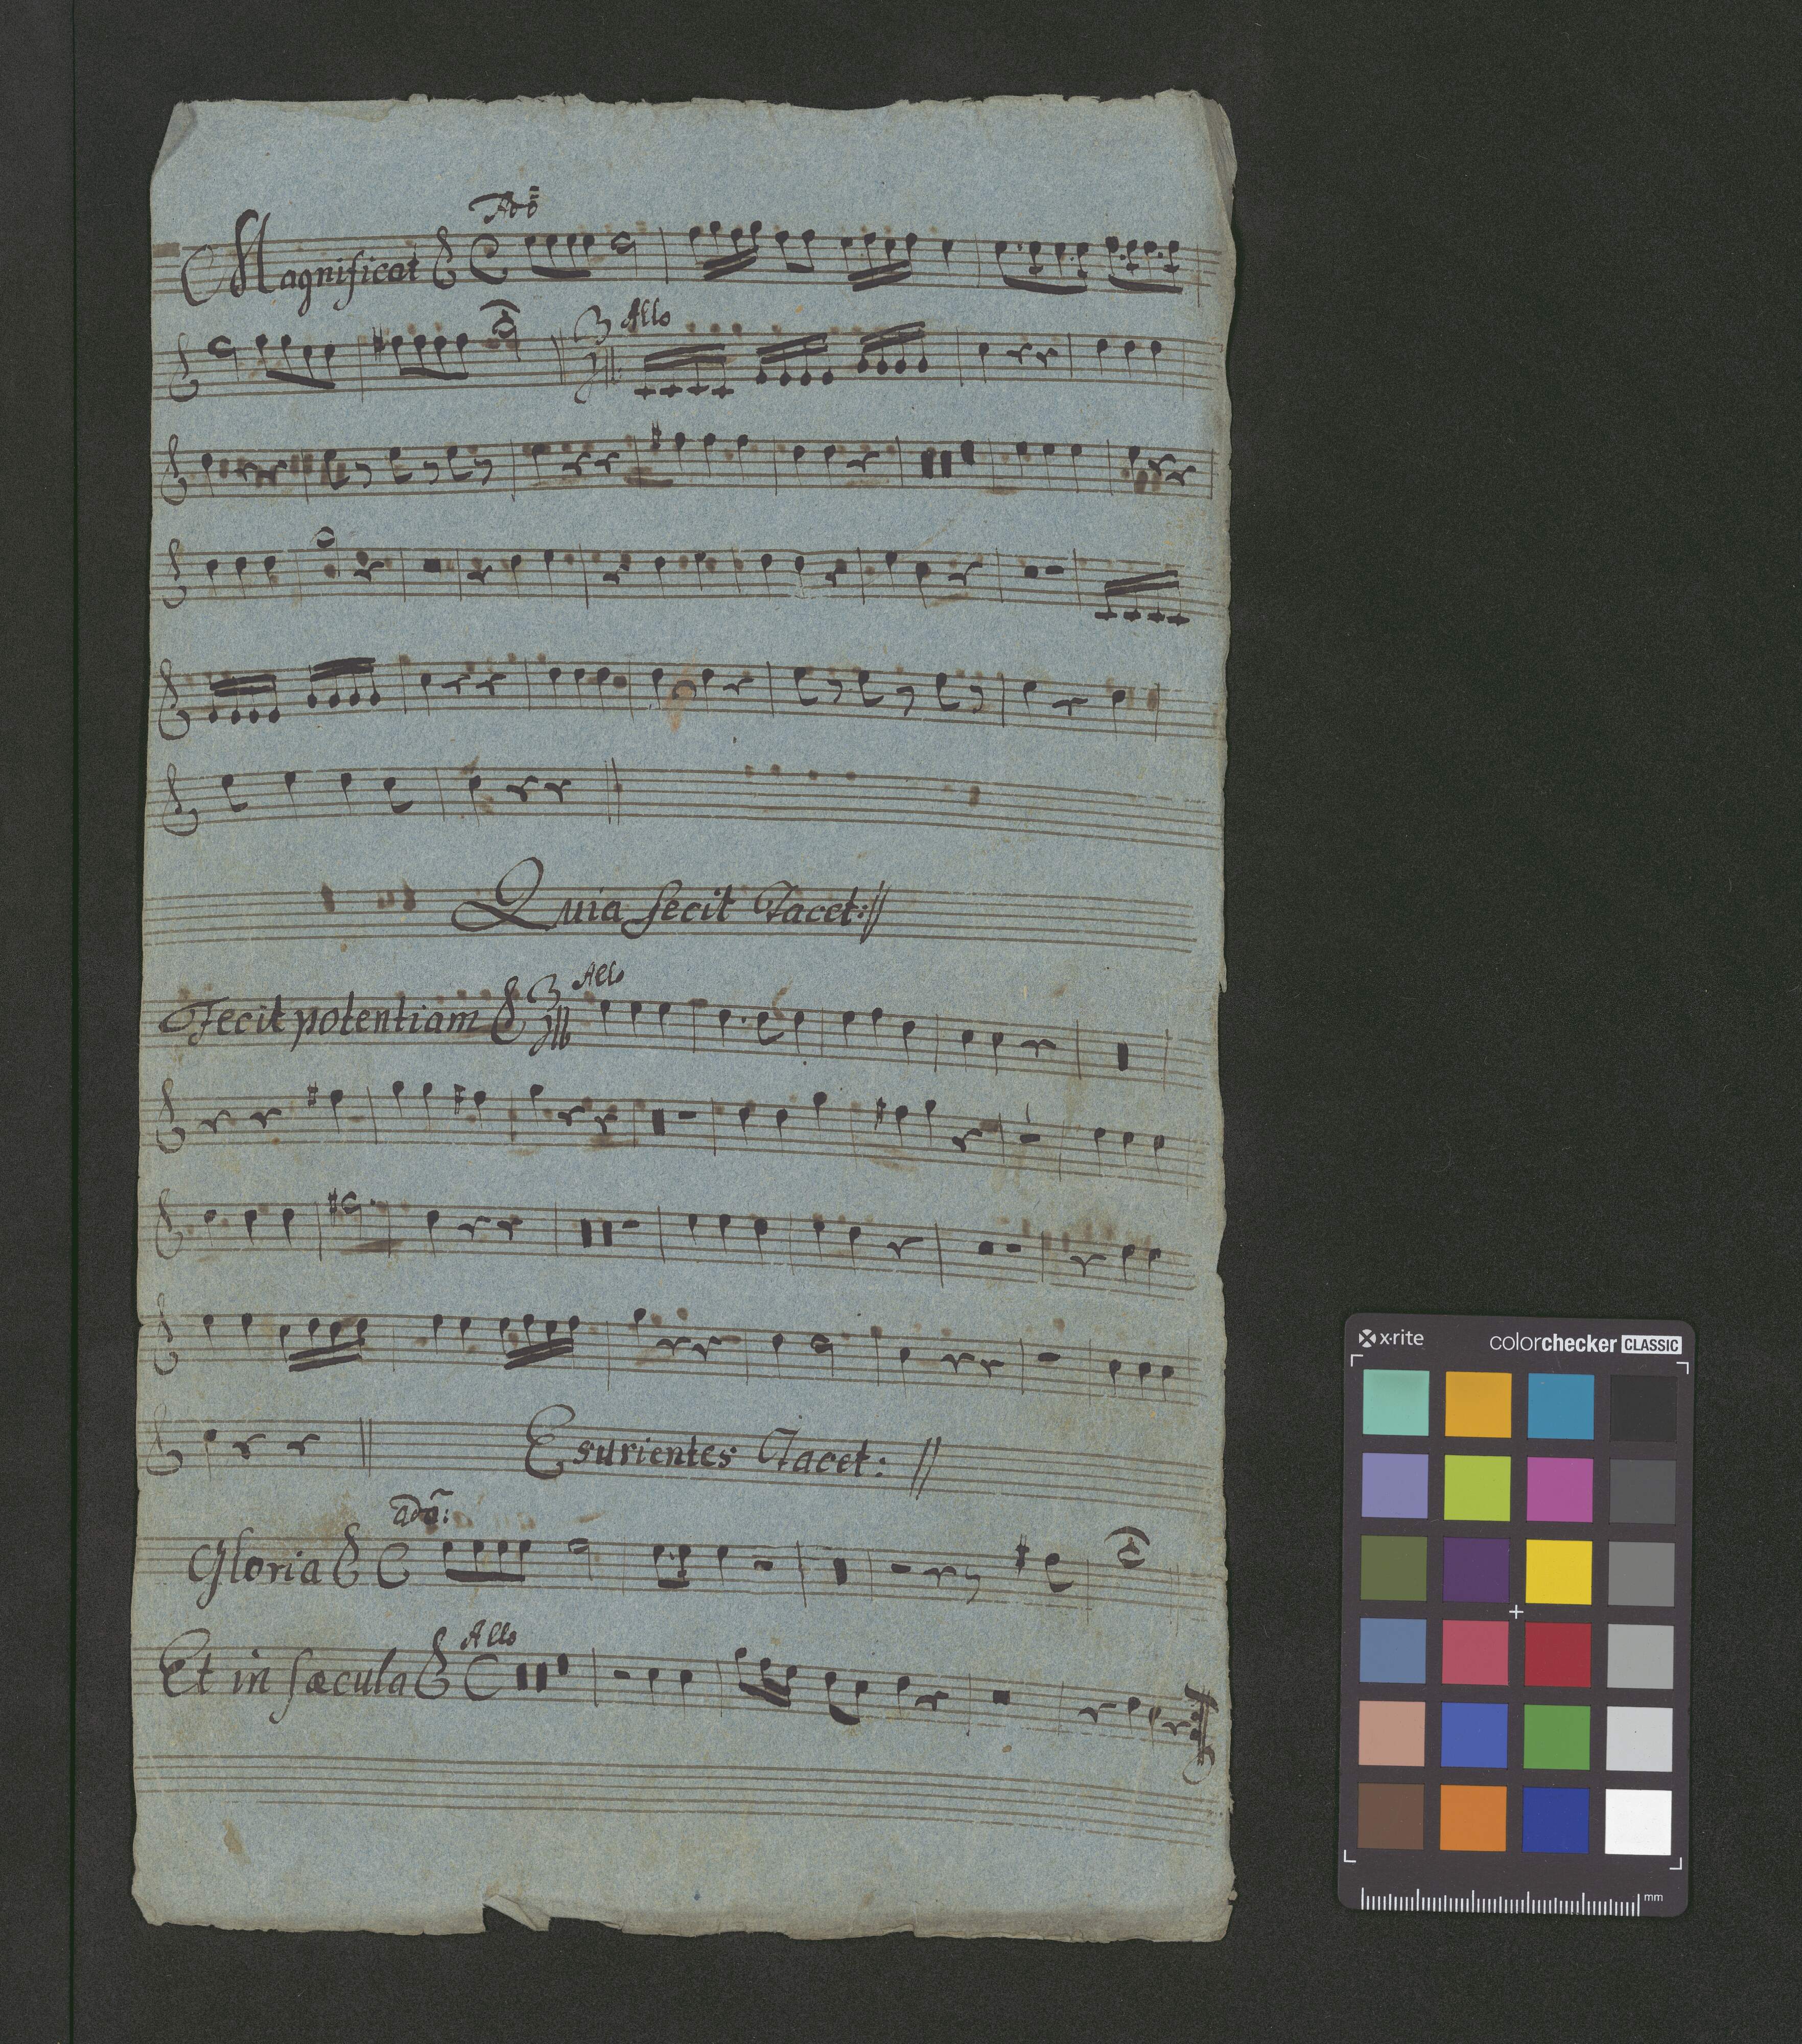 Magnificat Ado
3 Allo
Quia fecit Tacet://
Fecit potentiam 3 Allo
Esurientes Tacet: //
Gloria ado:
Et in sæcula Allo
x·rite colorchecker CLASSIC
mm